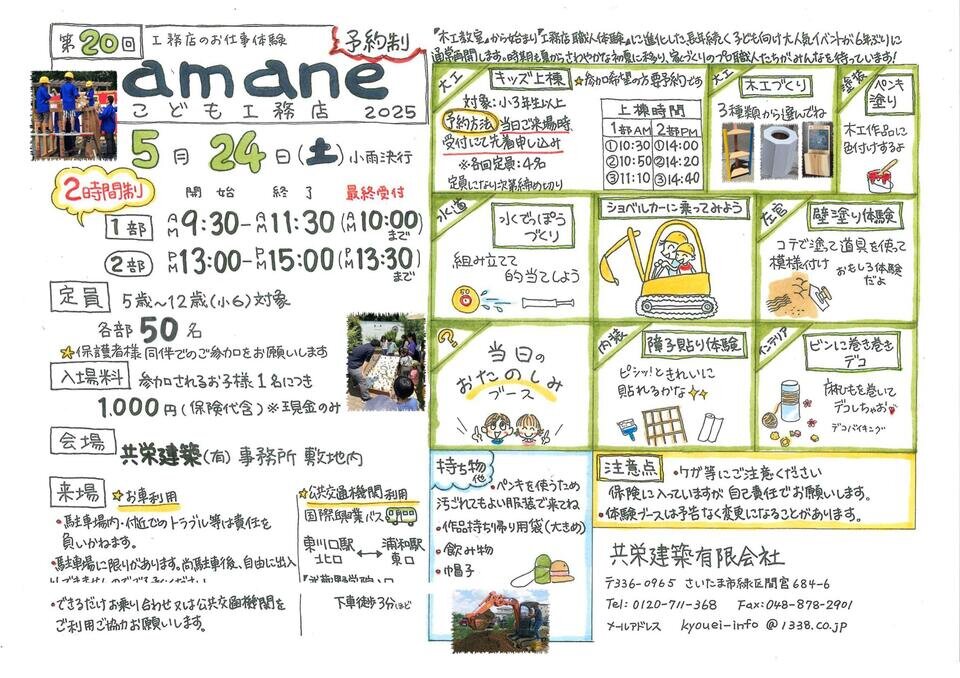 第20回 工務店のお仕事体験 予約制
amane
こども工務店 2025
5月24日(土)小雨決行
2時間制
開始 終了 最終受付
1部 AM9:30-AM11:30(AM10:00まで)
2部 PM13:00-PM15:00(PM13:30まで)
定員 5歳~12歳(小6)対象
各部50名
☆保護者様同伴でのご参加をお願いします
入場料 参加されるお子様1名につき
1.000円(保険代含)※現金のみ
会場 共栄建築(有)事務所敷地内
来場 ☆お車利用
・駐車場内・付近でのトラブル等は責任を
負いかねます。
・駐車場に限りがあります。尚駐車後、自由に出入
・できるだけお乗り合わせ又は公共交通機関を
ご利用ご協力お願いします。
☆公共交通機関利用
国際興業バス
東川口駅北口 ↔ 浦和駅東口
下車徒歩3分ほど
『木工教室』から始まり『工務店職人体験』に進化した長年続く子ども向け大人気イベントが6年ぶりに
通常再開します。時期も夏からさわやかな初夏に移り、家づくりのプロ職人たちがみんなを待っています!
大工 キッズ上棟 ☆参加希望の方要予約です
対象:小3年生以上
予約方法 当日ご来場時
受付にて先着申し込み
※各回定員:4名
定員になり次第締め切り
上棟時間
1部AM 2部PM
①10:30 ①14:00
②10:50 ②14:20
③11:10 ③14:40
大工 木工づくり
3種類から選んでね
塗装 ペンキ塗り
木工作品に
色付けするよ
水道 水でっぽうづくり
組み立てて
的当てしよう
50
ショベルカーに乗ってみよう
左官 壁塗り体験
コテで塗って道具を使って
模様付け おもしろ体験だよ
?
当日の
おたのしみ
ブース
内装 障子貼り体験
ピシッ!ときれいに
貼れるかな
インテリア ビンに巻き巻きデコ
麻ひもを巻いて
デコしちゃお
デコバイキング
持ち物他
・ペンキを使うため
汚れてもよい服装で来てね
・作品持ち帰り用袋(大きめ)
・飲み物
・帽子
注意点 ・ケガ等にご注意ください
保険に入っていますが自己責任でお願いします。
・体験ブースは予告なく変更になることがあります。
共栄建築有限会社
〒336-0965 さいたま市緑区間宮684-6
Tel: 0120-711-368 Fax:048-878-2901
メールアドレス kyouei-info@1338.co.jp